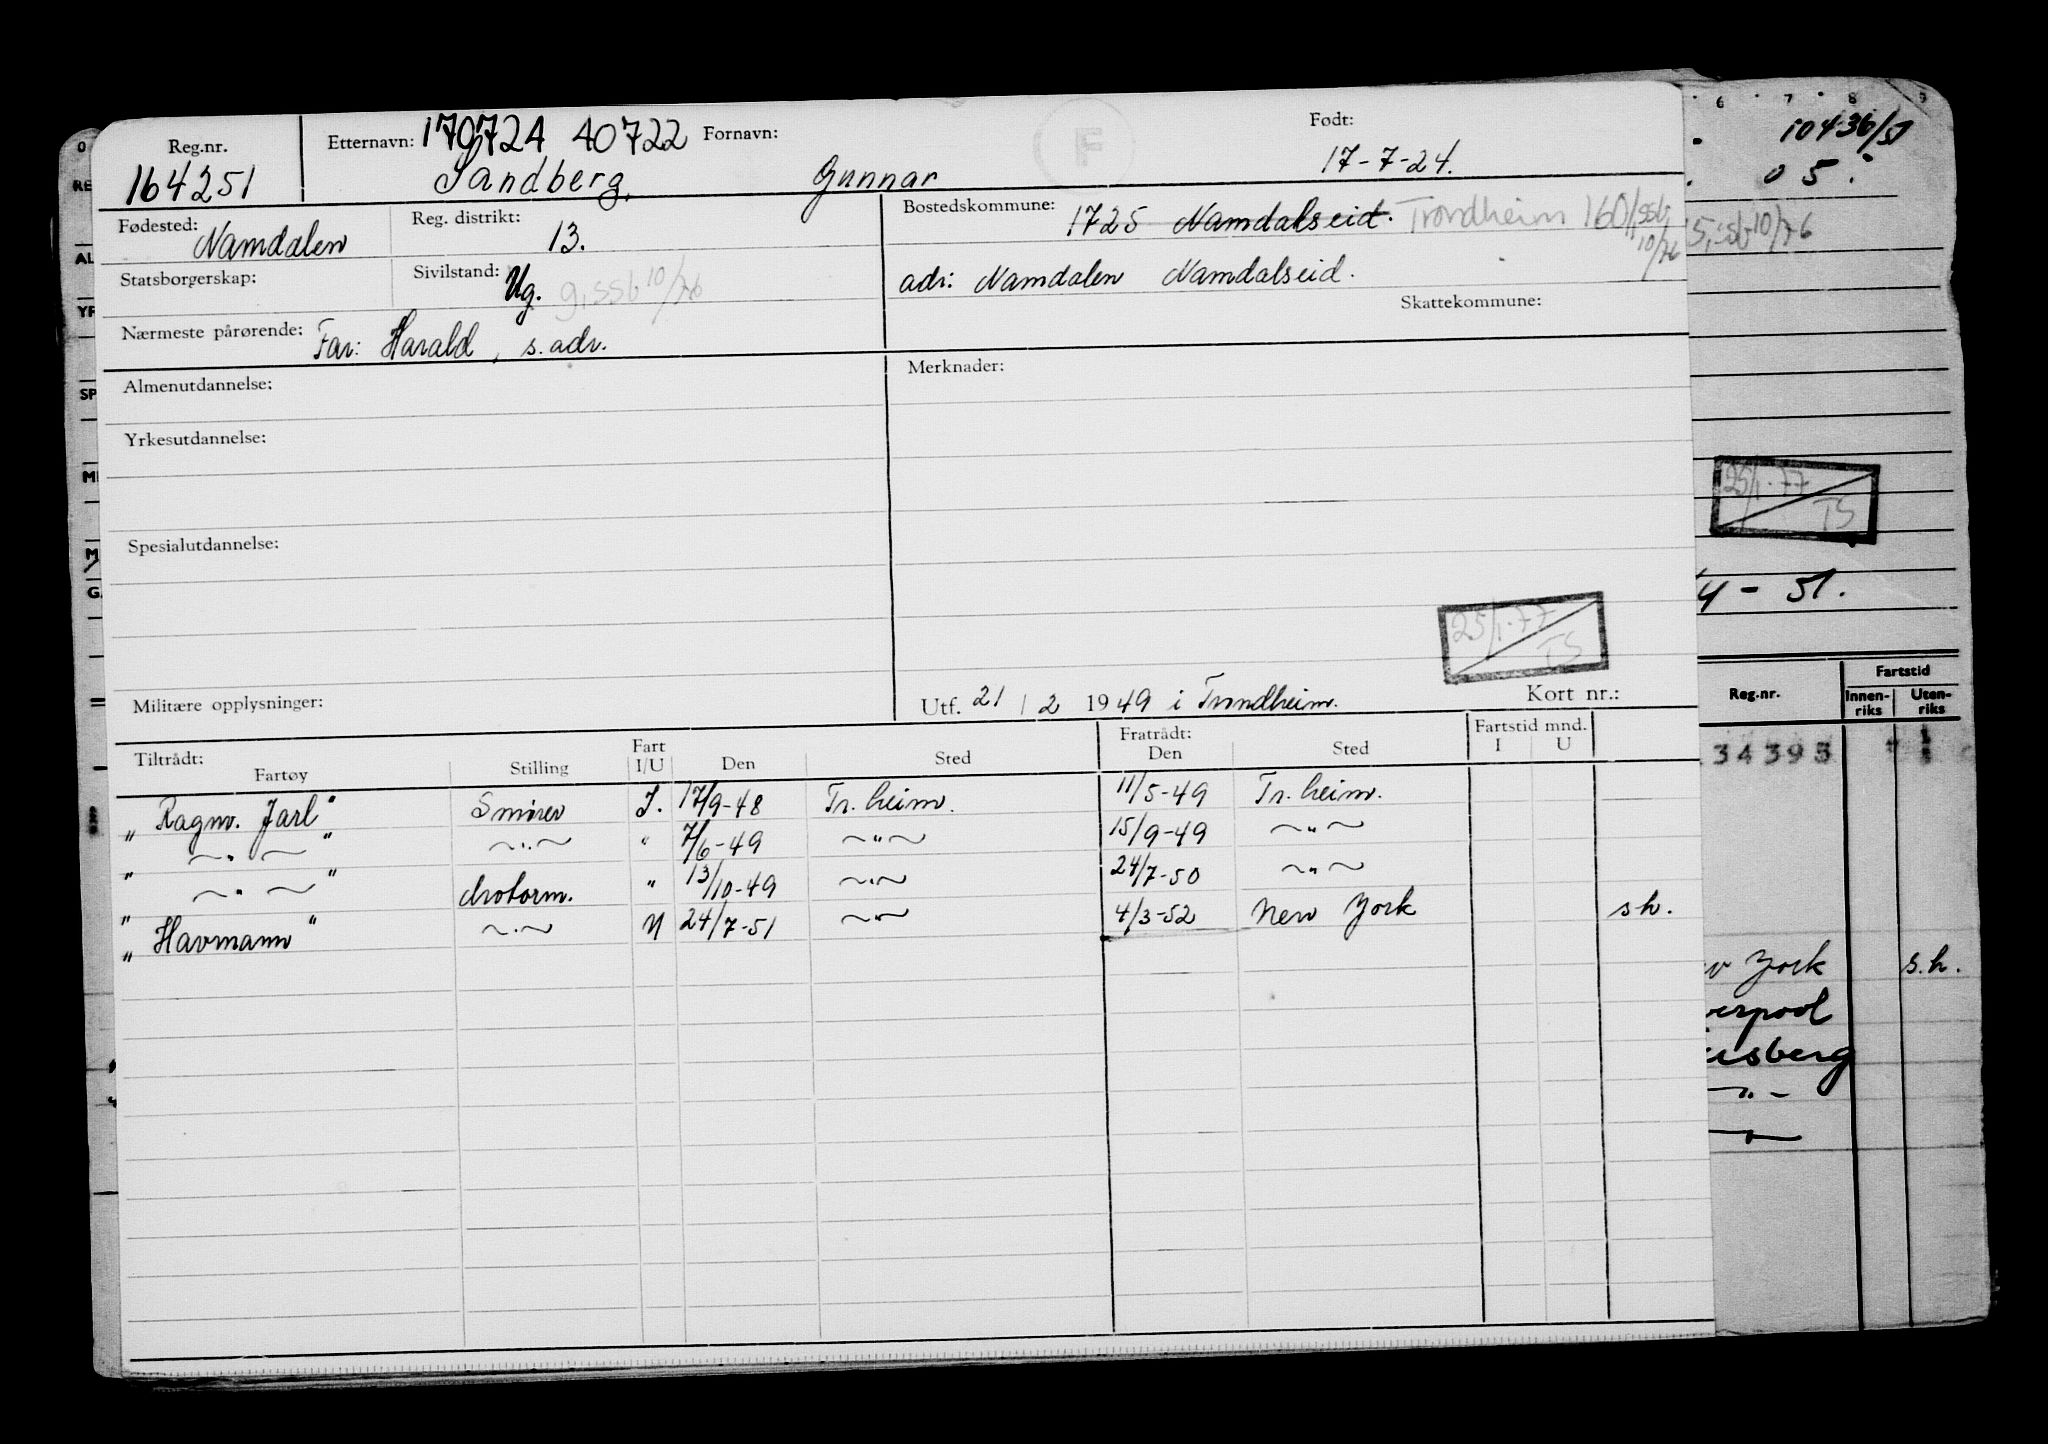 Reg.nr. Etternavn: 170724 40722 Fornavn: F Født:
164251 Sandberg, Gunnar 17-7-24.
Fødested: Namdalen Reg. distrikt: 13. Bostedskommune: 1725 Namdalseid. Trondheim 160/ssb, 10/76
Statsborgerskap: Sivilstand: Ug. g, ssb 10/76 adr: Namdalen Namdalseid.
Skattekommune:
Nærmeste pårørende: Far: Harald, s. adr.
Almenutdannelse: Merknader:
Yrkesutdannelse:
Spesialutdannelse:
25/1-77
TS
Militære opplysninger: Utf. 21 / 2 1949 i Trondheim. Kort nr.:
Tiltrådt: Fratrådt: Fartstid mnd.
Fartøy Stilling Fart I/U Den Sted Den Sted I U
" Ragnv. Jarl " Smører I. 17/9-48 Tr.heim. 11/5-49 Tr.heim.
" ~ " ~ " ~ " ~ " 7/6-49 ~ " ~ 15/9-49 ~ " ~
" ~ " ~ " Motorm. " 13/10-49 ~ " ~ 24/7-50 ~ " ~
" Havmann " ~ " ~ U 24/7-51 ~ " ~ 4/3-52 New York s.h.
6 7 8 9
10436/51
05.
5, ssb 10/76
25/1-77
TS
- 51.
Reg.nr. Fartstid
Innen-riks Uten-riks
34393
York s.h.
verpool
usberg
~ " ~
O
RE
AL
YR
SP
M
G.